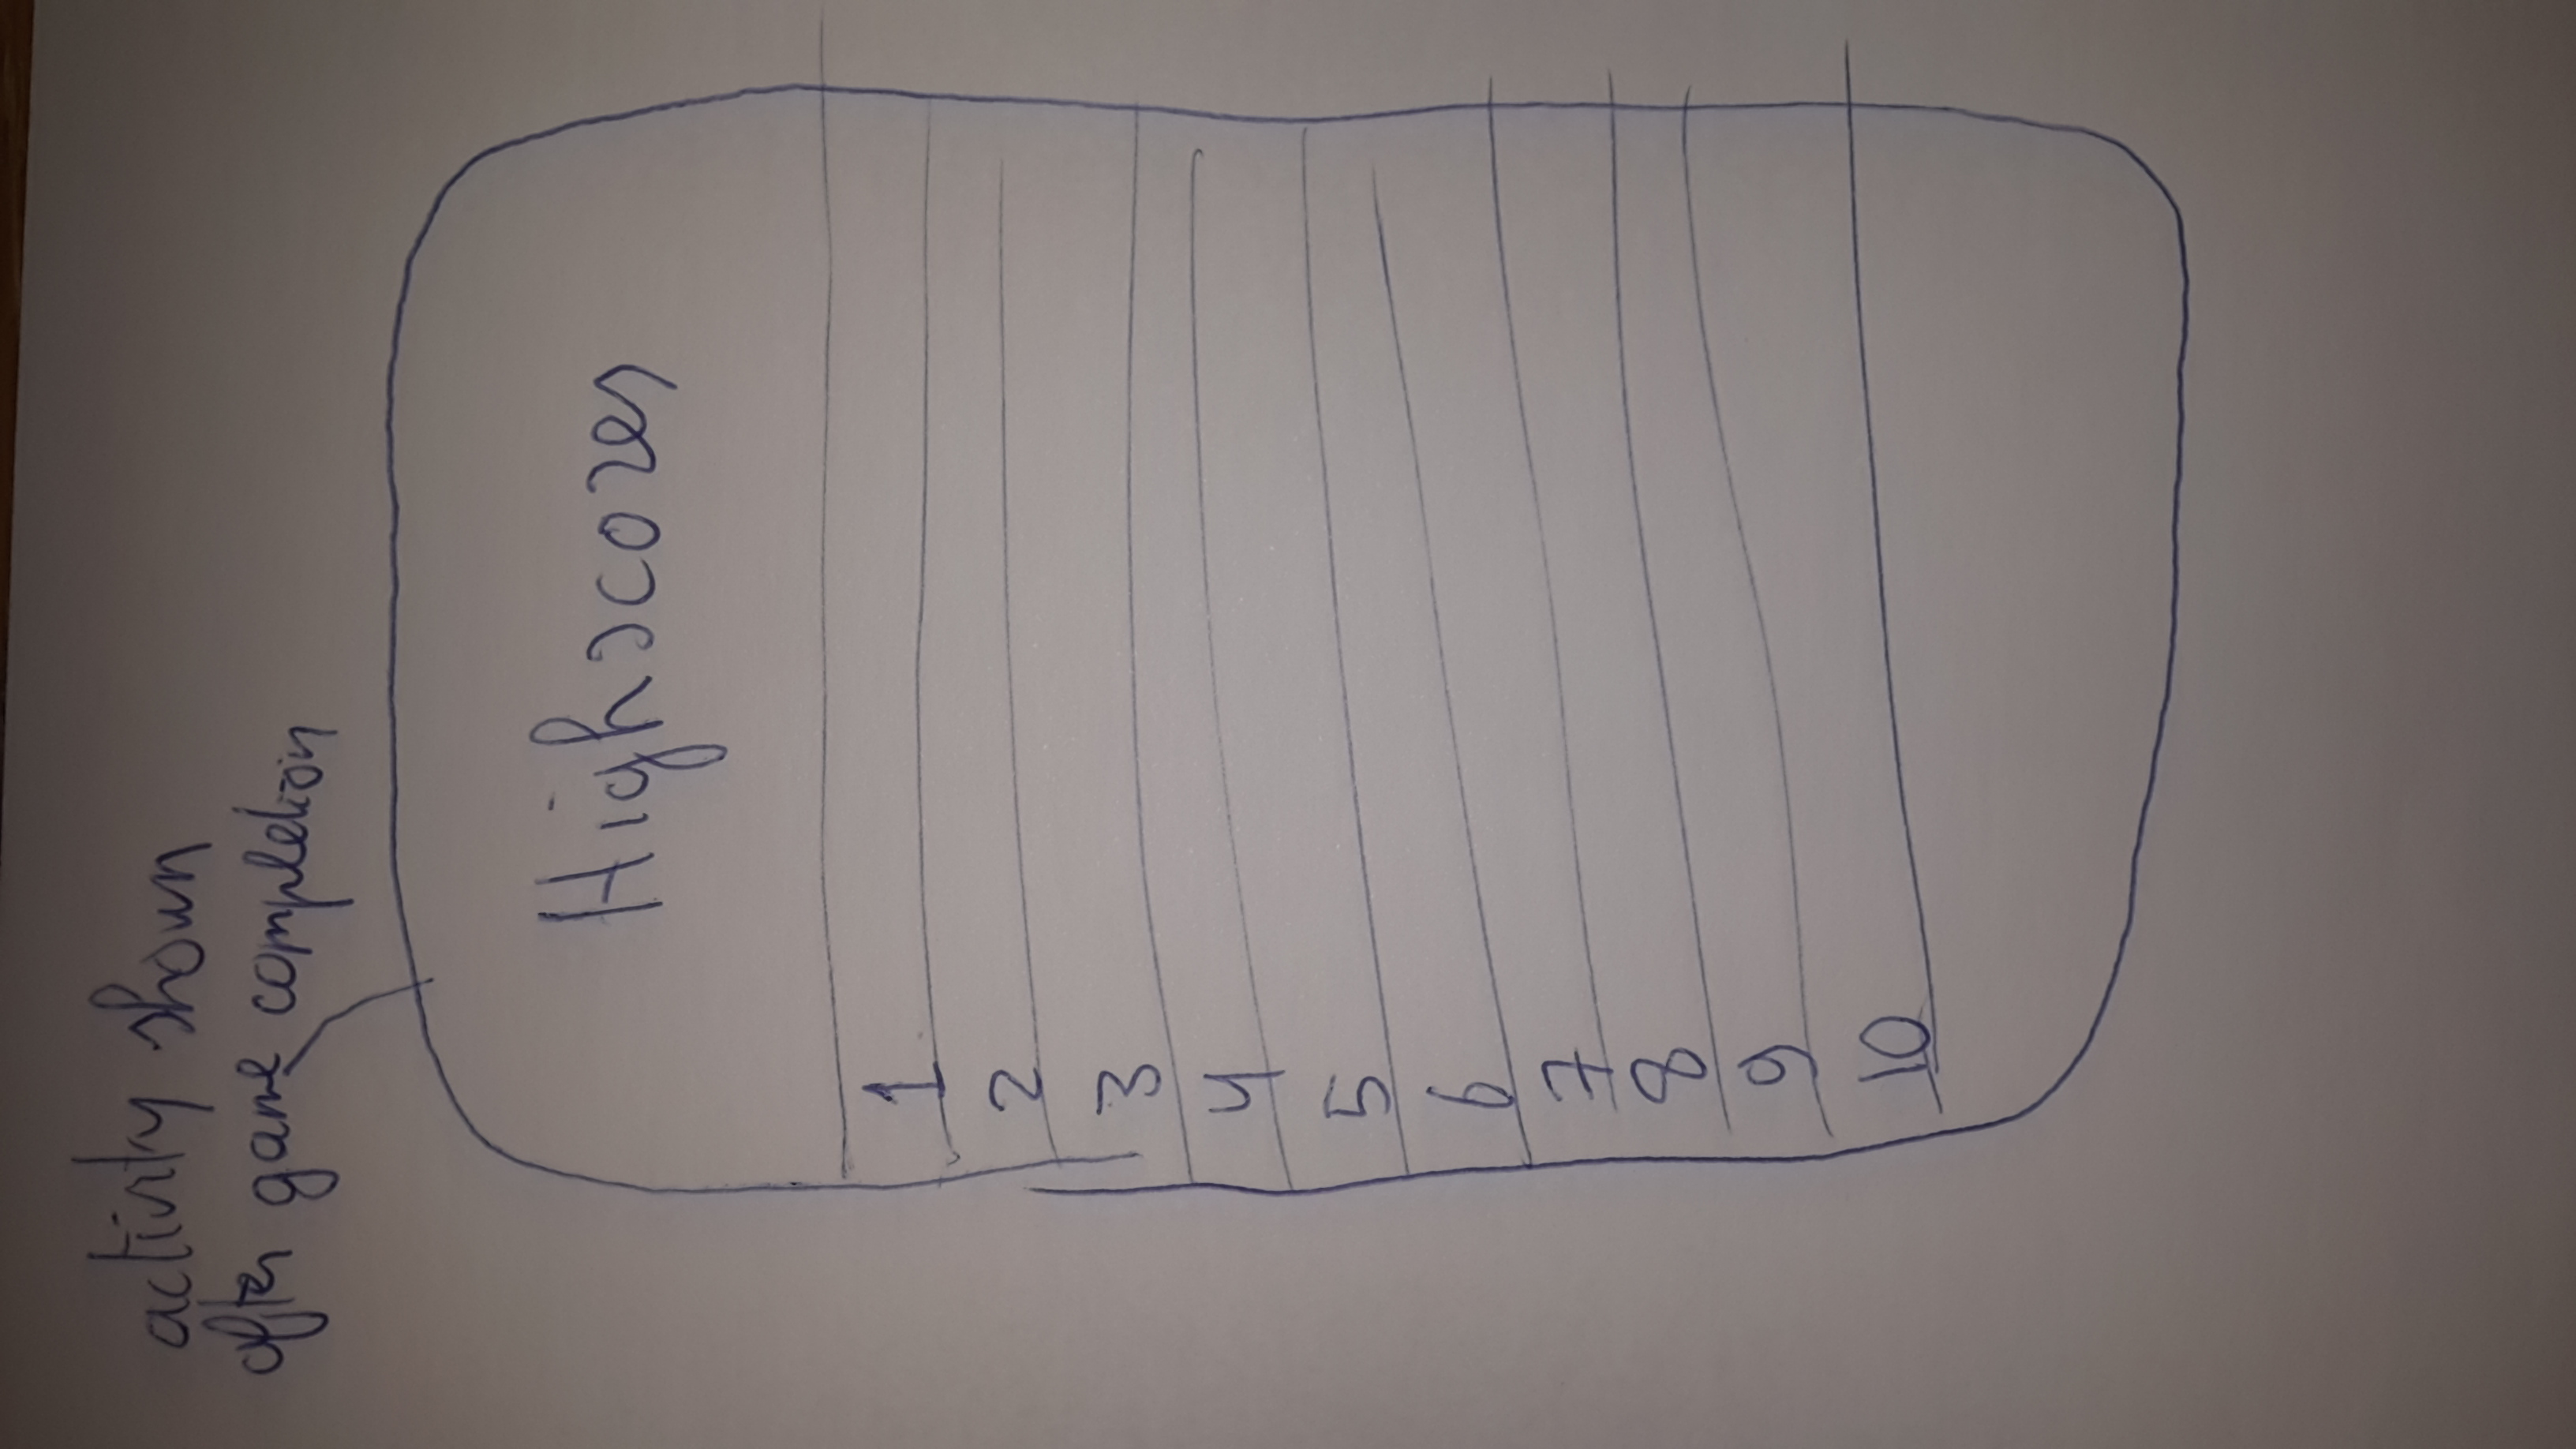 activity shown
after game completion
Highscores
1
2
3
4
5
6
7
8
9
10